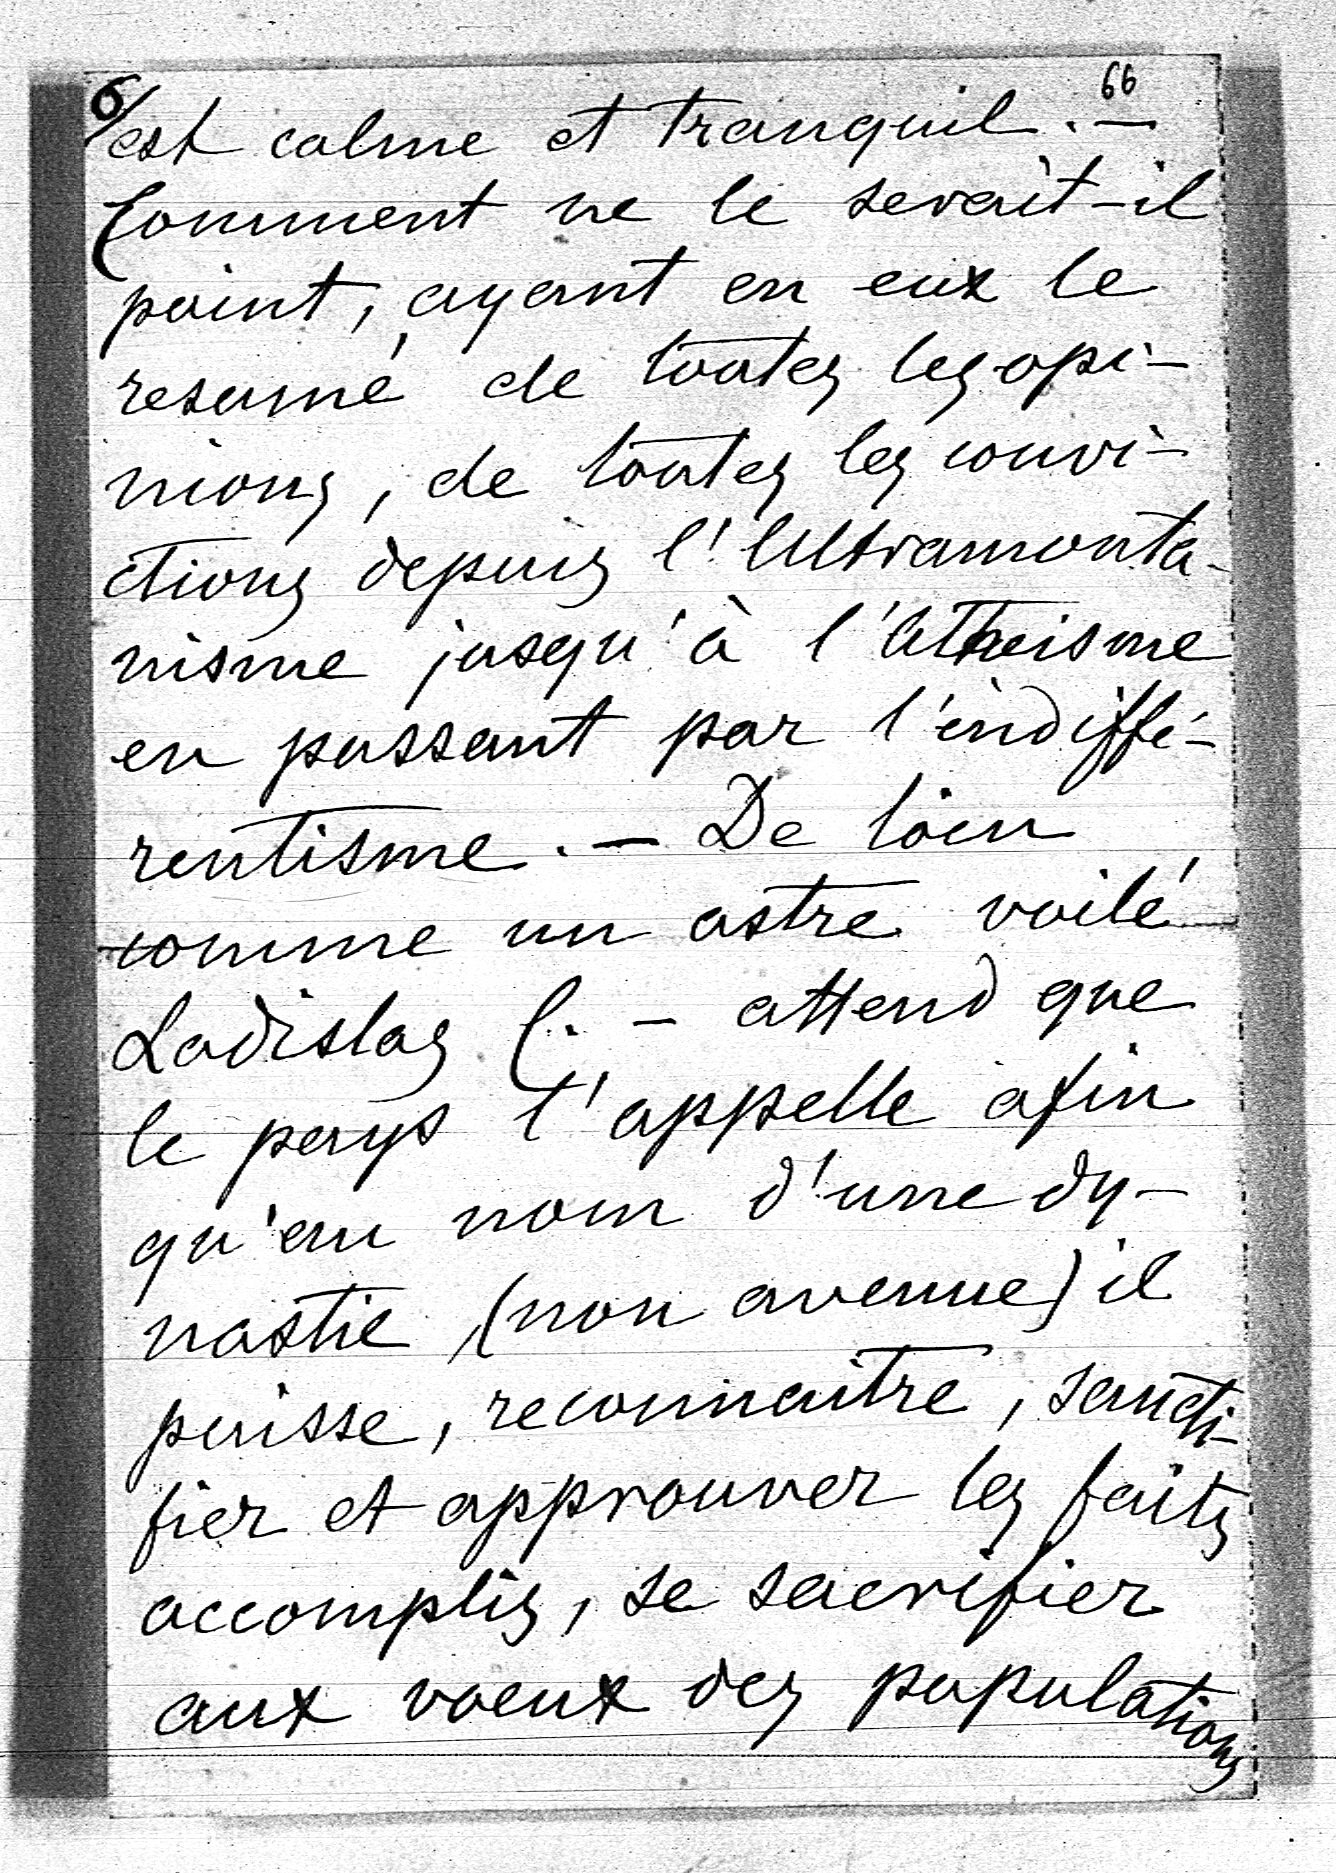 6/ 66
est calme et tranquil. —
Comment ne le serait-il
point, ayant en eux le
resumé de toutes les opi-
nions, de toutes les convi-
ctions depuis l'Ultramonta-
nisme jusqu'à l'Atheisme
en passant par l'indiffé-
rentisme. — De loin
comme un astre voilé
Ladislas C. — attend que
le pays l'appelle afin
qu'au nom d'une dy-
nastie, (non avenue) il
puisse, reconnaitre, sancti-
fier et approuver les faits
accomplis, se sacrifier
aux voeux des populations